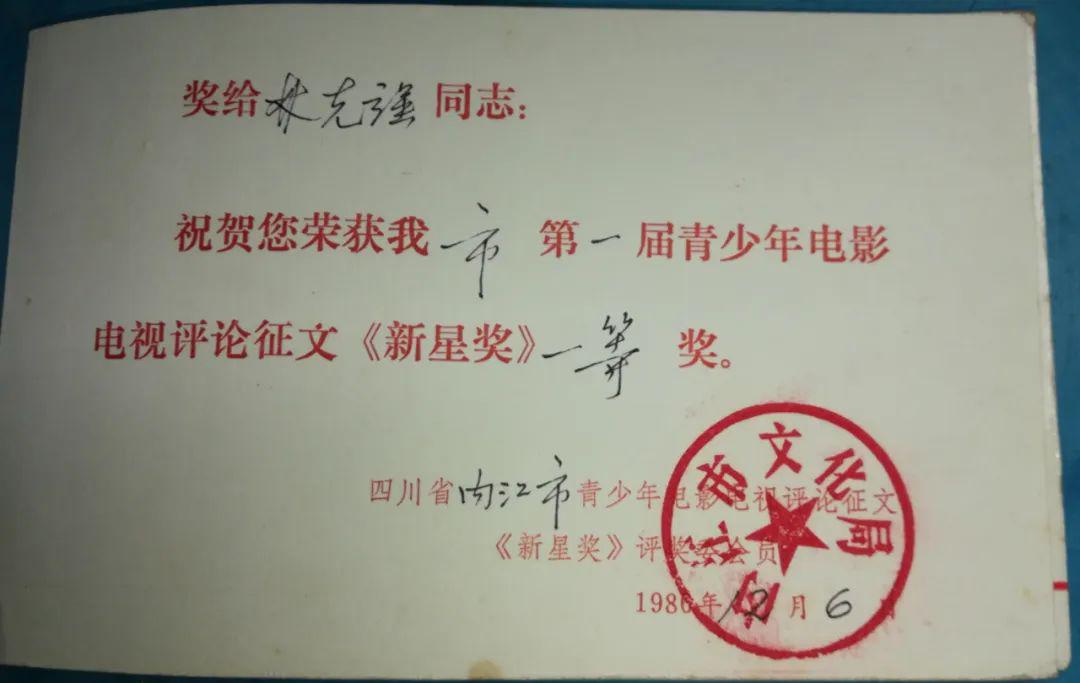 奖给林克强同志：
祝贺您荣获我市第一届青少年电影
电视评论征文《新星奖》一等奖。
四川省内江市青少年电影电视评论征文
《新星奖》评奖委员会
1986年12月6日
内江市文化局